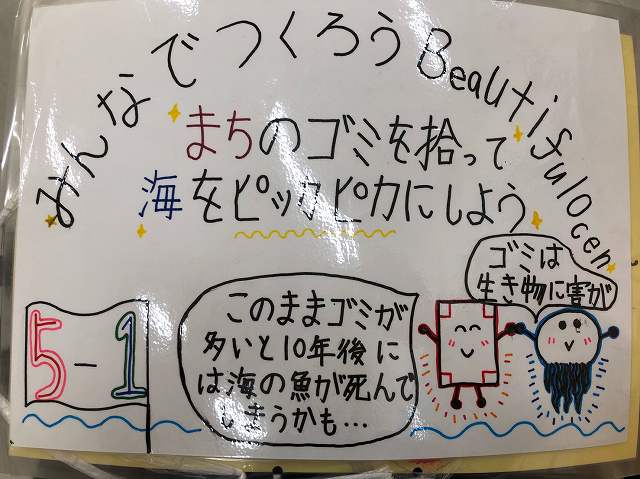 みんなでつくろうBeautifulOcen
まちのゴミを拾って
海をピッカピカにしよう
ゴミは
生き物に害が
5-1
このままゴミが
多いと10年後に
は海の魚が死んで
しまうかも…